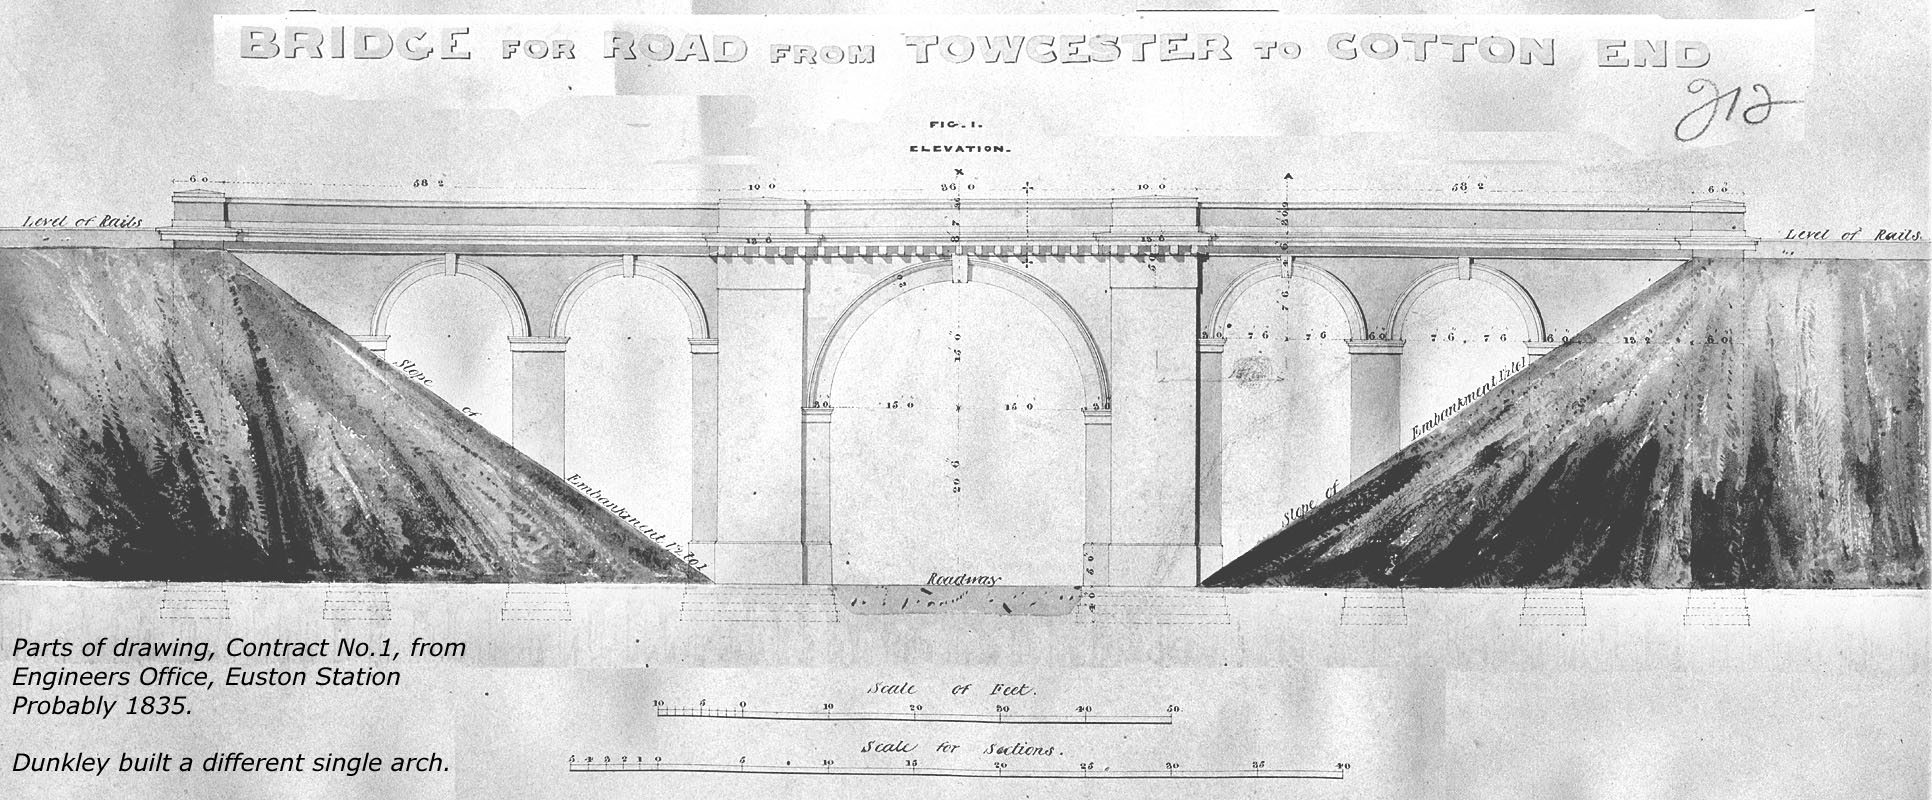 BRIDGE FOR ROAD FROM TOWCESTER TO COTTON END
212
FIG. 1.
ELEVATION.
X A
6 0 58 2 10 0 36 0 10 0 58 2 6 0
Level of Rails
Level of Rails
13 0
7 6
3 0 7 6 7 6 6 0 7 6 7 6 6 0 13 2 6 0
15 0
3 0 15 0 15 0 3 0
20 6
Slope of Embankment
Slope of Embankment
Roadway
Parts of drawing, Contract No.1, from
Engineers Office, Euston Station
Probably 1835.
Dunkley built a different single arch.
Scale of Feet.
10 5 0 10 20 30 40 50
Scale for Sections.
5 4 3 2 1 0 5 10 15 20 25 30 35 40